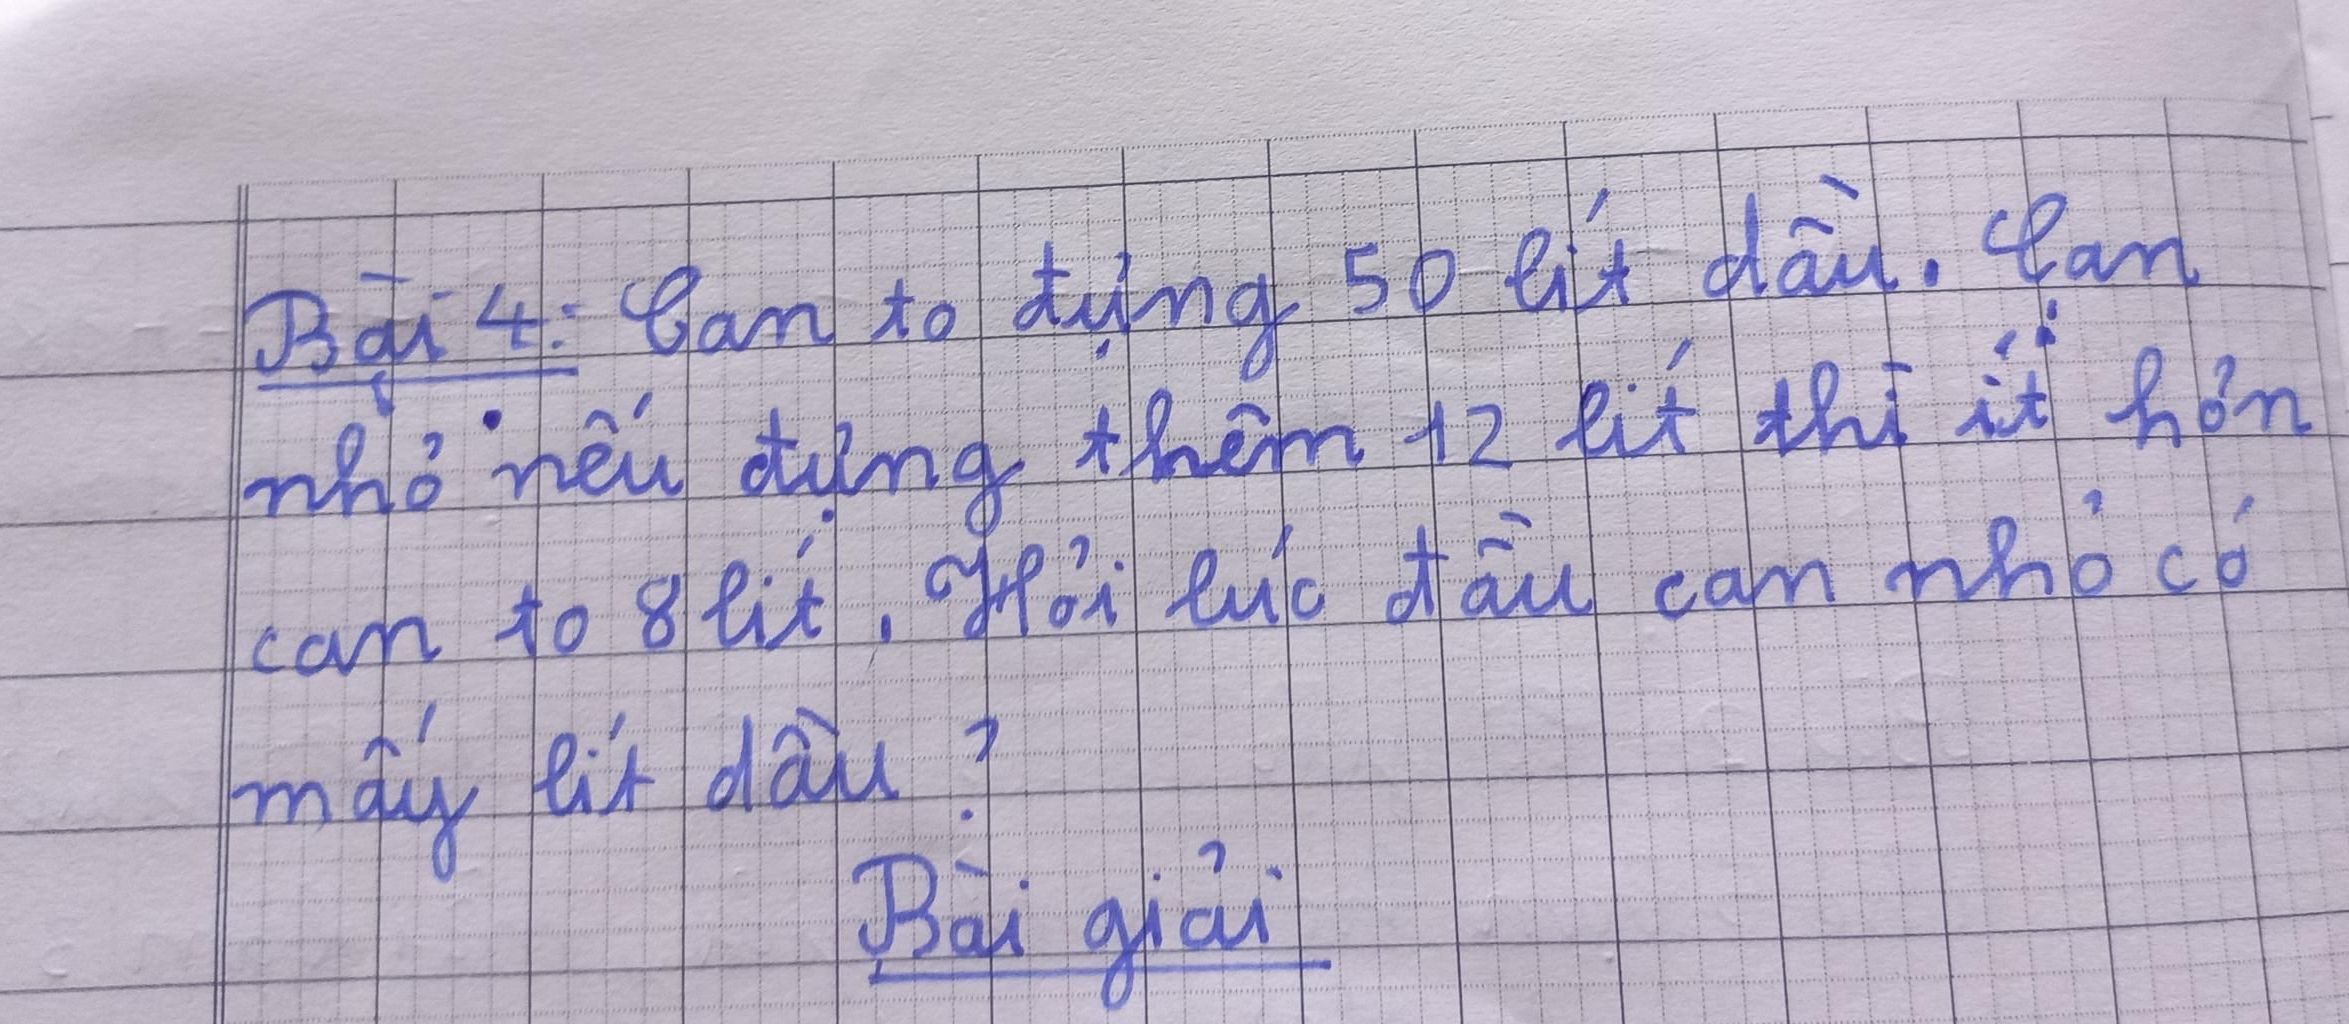 Bài 4: Can to đựng 50 lít dầu. Can
nhỏ nếu đựng thêm 12 lít thì ít hơn
can to 8 lít. Hỏi lúc đầu can nhỏ có
mấy lít dầu?
Bài giải